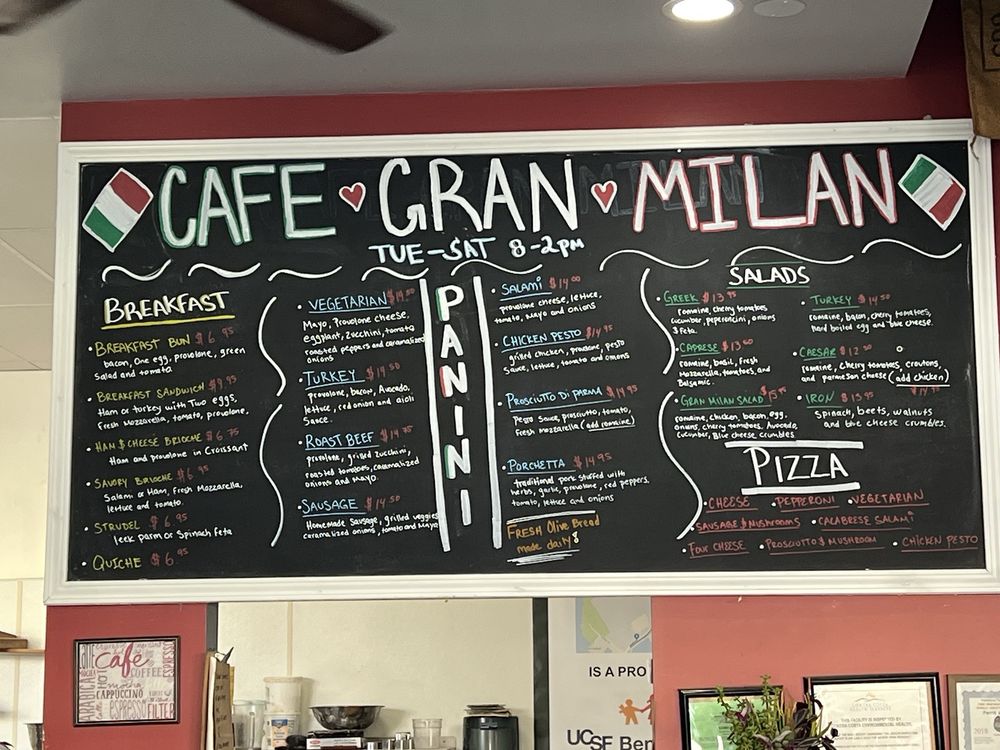 CAFE GRAN MILAN
TUE-SAT 8-2PM
BREAKFAST
BREAKFAST BUN $6.95
bacon, One egg, provolone, green
Salad and tomato
BREAKFAST SANDWICH $9.95
Ham or turkey with Two eggs,
Fresh Mozzarella, tomato, provolone.
HAM & CHEESE BRIOCHE $6.75
Ham and provolone in Croissant
SAVORY BRIOCHE $6.95
Salami or Ham, Fresh Mozzarella,
lettuce and tomato.
STRUDEL $6.95
leek parm or Spinach feta
QUICHE $6.95
VEGETARIAN $14.50
Mayo, Provolone cheese,
eggplant, Zucchini, tomato
roasted peppers and caramelized
onions
TURKEY $14.50
provolone, bacon, Avocado,
lettuce, red onion and aioli
Sauce.
ROAST BEEF $14.75
provolone, grilled Zucchini,
roasted tomatoes, caramalized
onions and Mayo.
SAUSAGE $14.50
Homemade Sausage, grilled veggies
caramalized onions, tomato and Mayo
PANINI
SALAMI $14.00
provolone cheese, lettuce,
tomato, Mayo and onions
CHICKEN PESTO $14.95
grilled chicken, provolone, pesto
Sauce, lettuce, tomato and onions
PROSCIUTTO DI PARMA $14.95
Pesto Sauce, prosciutto, tomato,
Fresh mozzarella (add romaine)
PORCHETTA $14.95
traditional pork stuffed with
herbs, garlic, provolone, red peppers,
tomato, lettuce and onions
FRESH Olive Bread
made daily!
SALADS
GREEK $13.95
romaine, cherry tomatoes,
cucumber, peperoncini, onions
& Feta.
CAPRESE $13.50
romaine, basil, fresh
Mozzarella, tomatoes, and
Balsamic.
GRAN MILAN SALAD $15.95
romaine, chicken, bacon, egg,
onions, cherry tomatoes, Avocado,
Cucumber, Blue cheese crumbles
TURKEY $14.50
romaine, bacon, cherry tomatoes,
hard boiled egg and blue cheese.
CAESAR $12.50
romaine, cherry tomatoes, croutons,
and parmesan cheese (add chicken)
IRON $13.95
Spinach, beets, walnuts
and blue cheese crumbles.
PIZZA
CHEESE PEPPERONI VEGETARIAN
SAUSAGE & Mushrooms CALABRESE SALAMI
FOUR CHEESE PROSCIUTTO & MUSHROOM CHICKEN PESTO
café
COFFEE
CAPPUCCINO
ESPRESSO
FILTER
ARABICA
IS A PRO
UCSF Ben
THIS FACILITY IS INSPECTED BY